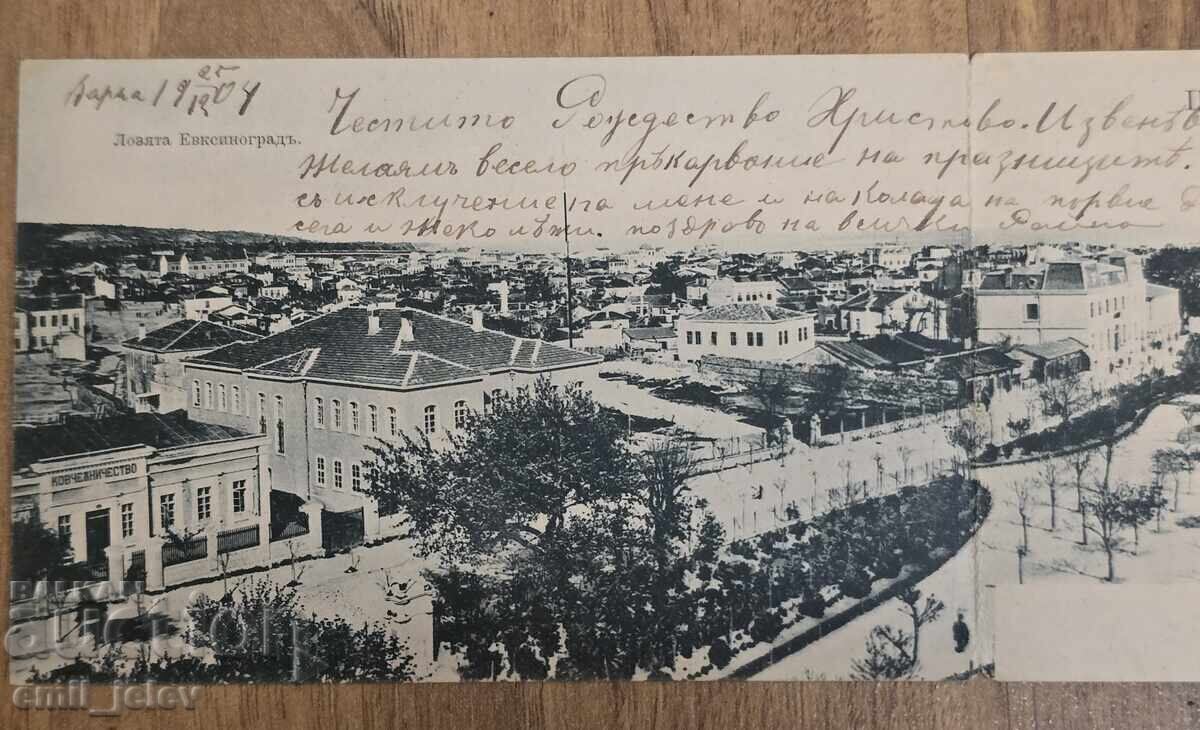 Варна 19 25/12 04
Лозята Евксиноградъ.
Честито Рождество Христово. Извенѣ
Желаямъ весело прѣкарвание на празницитѣ.
съ исключение на мене и на Колада на първие
сега и Жеко лѣжи. поздрово на всички
КОВЧЕЖНИЧЕСТВО
БАЛКАН
auction
emil_jelev